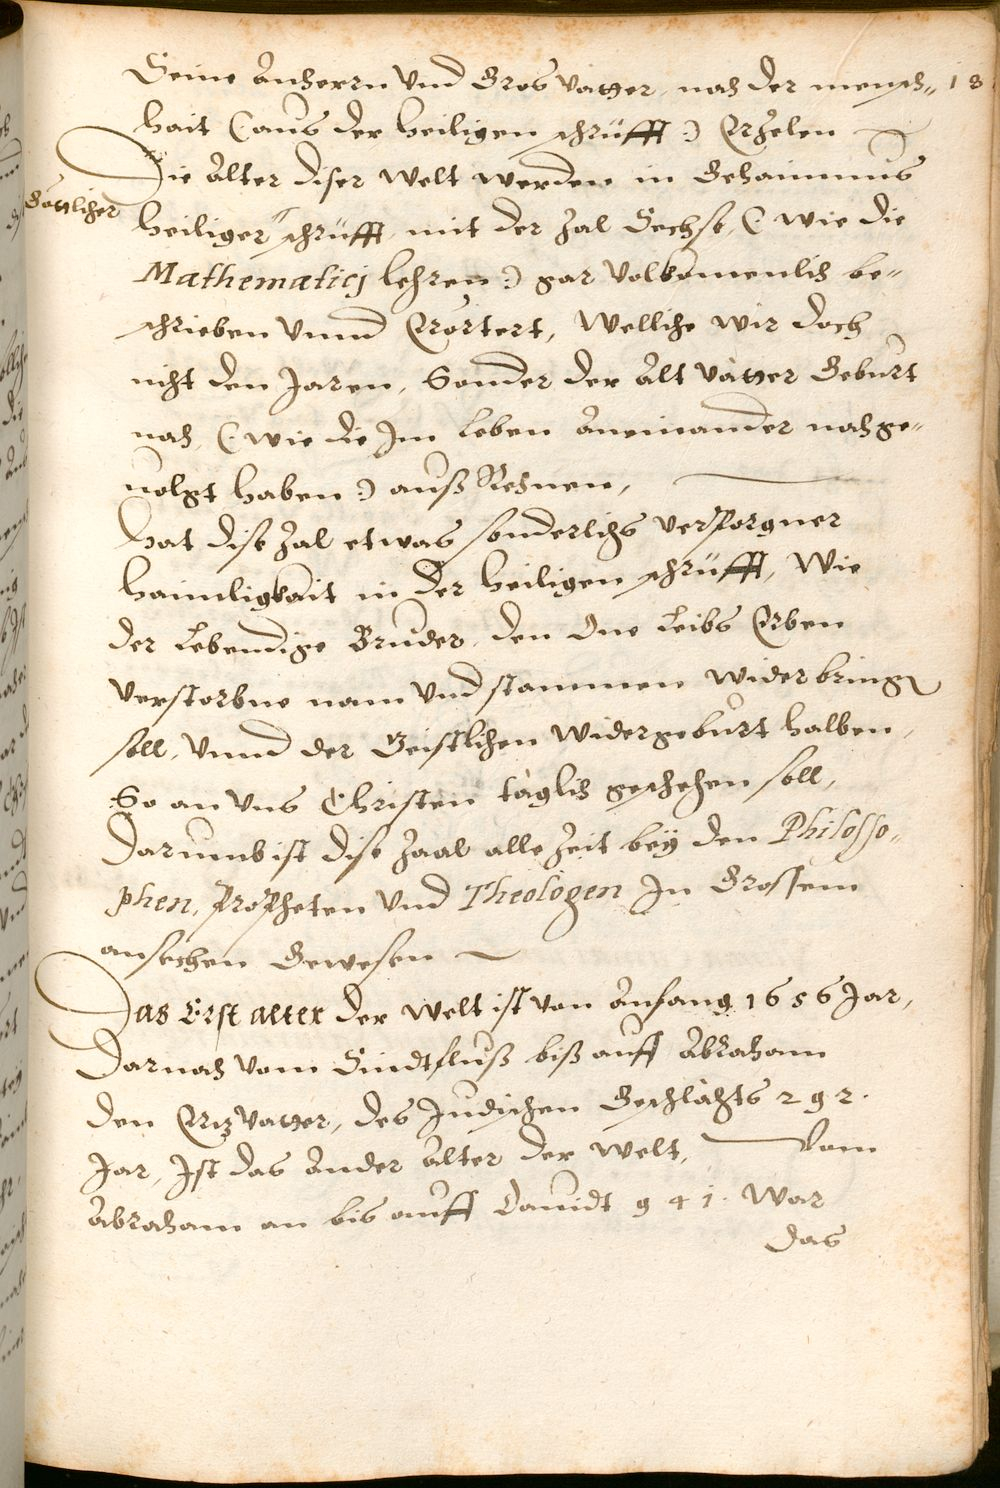 Seine Anherrn Vnd Gros Vatter, nach der mensch„ 18
hait (: aus der heiligen schrüfft :) Erzelen
Die Alter diser Welt werden in Gehaimnus
Göttlicher
heiliger schrüfft, mit der Zal Sechse, (: wie die
Mathematicj lehren :) gar Volkomenlich be„
schrieben Vnnd Erörtert, Wellche wir doch
nicht den Jaren, Sonder der Alt Vätter Geburt
nach, (: wie die Jm Leben Aneinander nachge„
uolgt haben :) auß Rechnen,
hat dise Zal etwas sonderlichs Verporgner
haimligkait in der heiligen schrüfft, Wie
der Lebendige Bruder, den One Leibs Erben
Verstorbne nam Vnd stammen widerbringen
soll, Vnnd der Geistlichen Widergeburt halben,
So an Vns Christen täglich geschehen soll,
Darumb ist dise Zaal alle Zeit bey den Philosso„
phen, Propheten Vnd Theologen Jn Grossem
ansechen Gewesen
Das Erst alter der Welt ist von Anfang 1656 Jar,
Darnach Vom Sindtfluß biß auff Abraham
den Ertz Vatter, des Judischen Geschlächts 292.
Jar, Jst das Ander Alter der Welt, Vom
Abraham an bis auff Dauidt 941. War
das